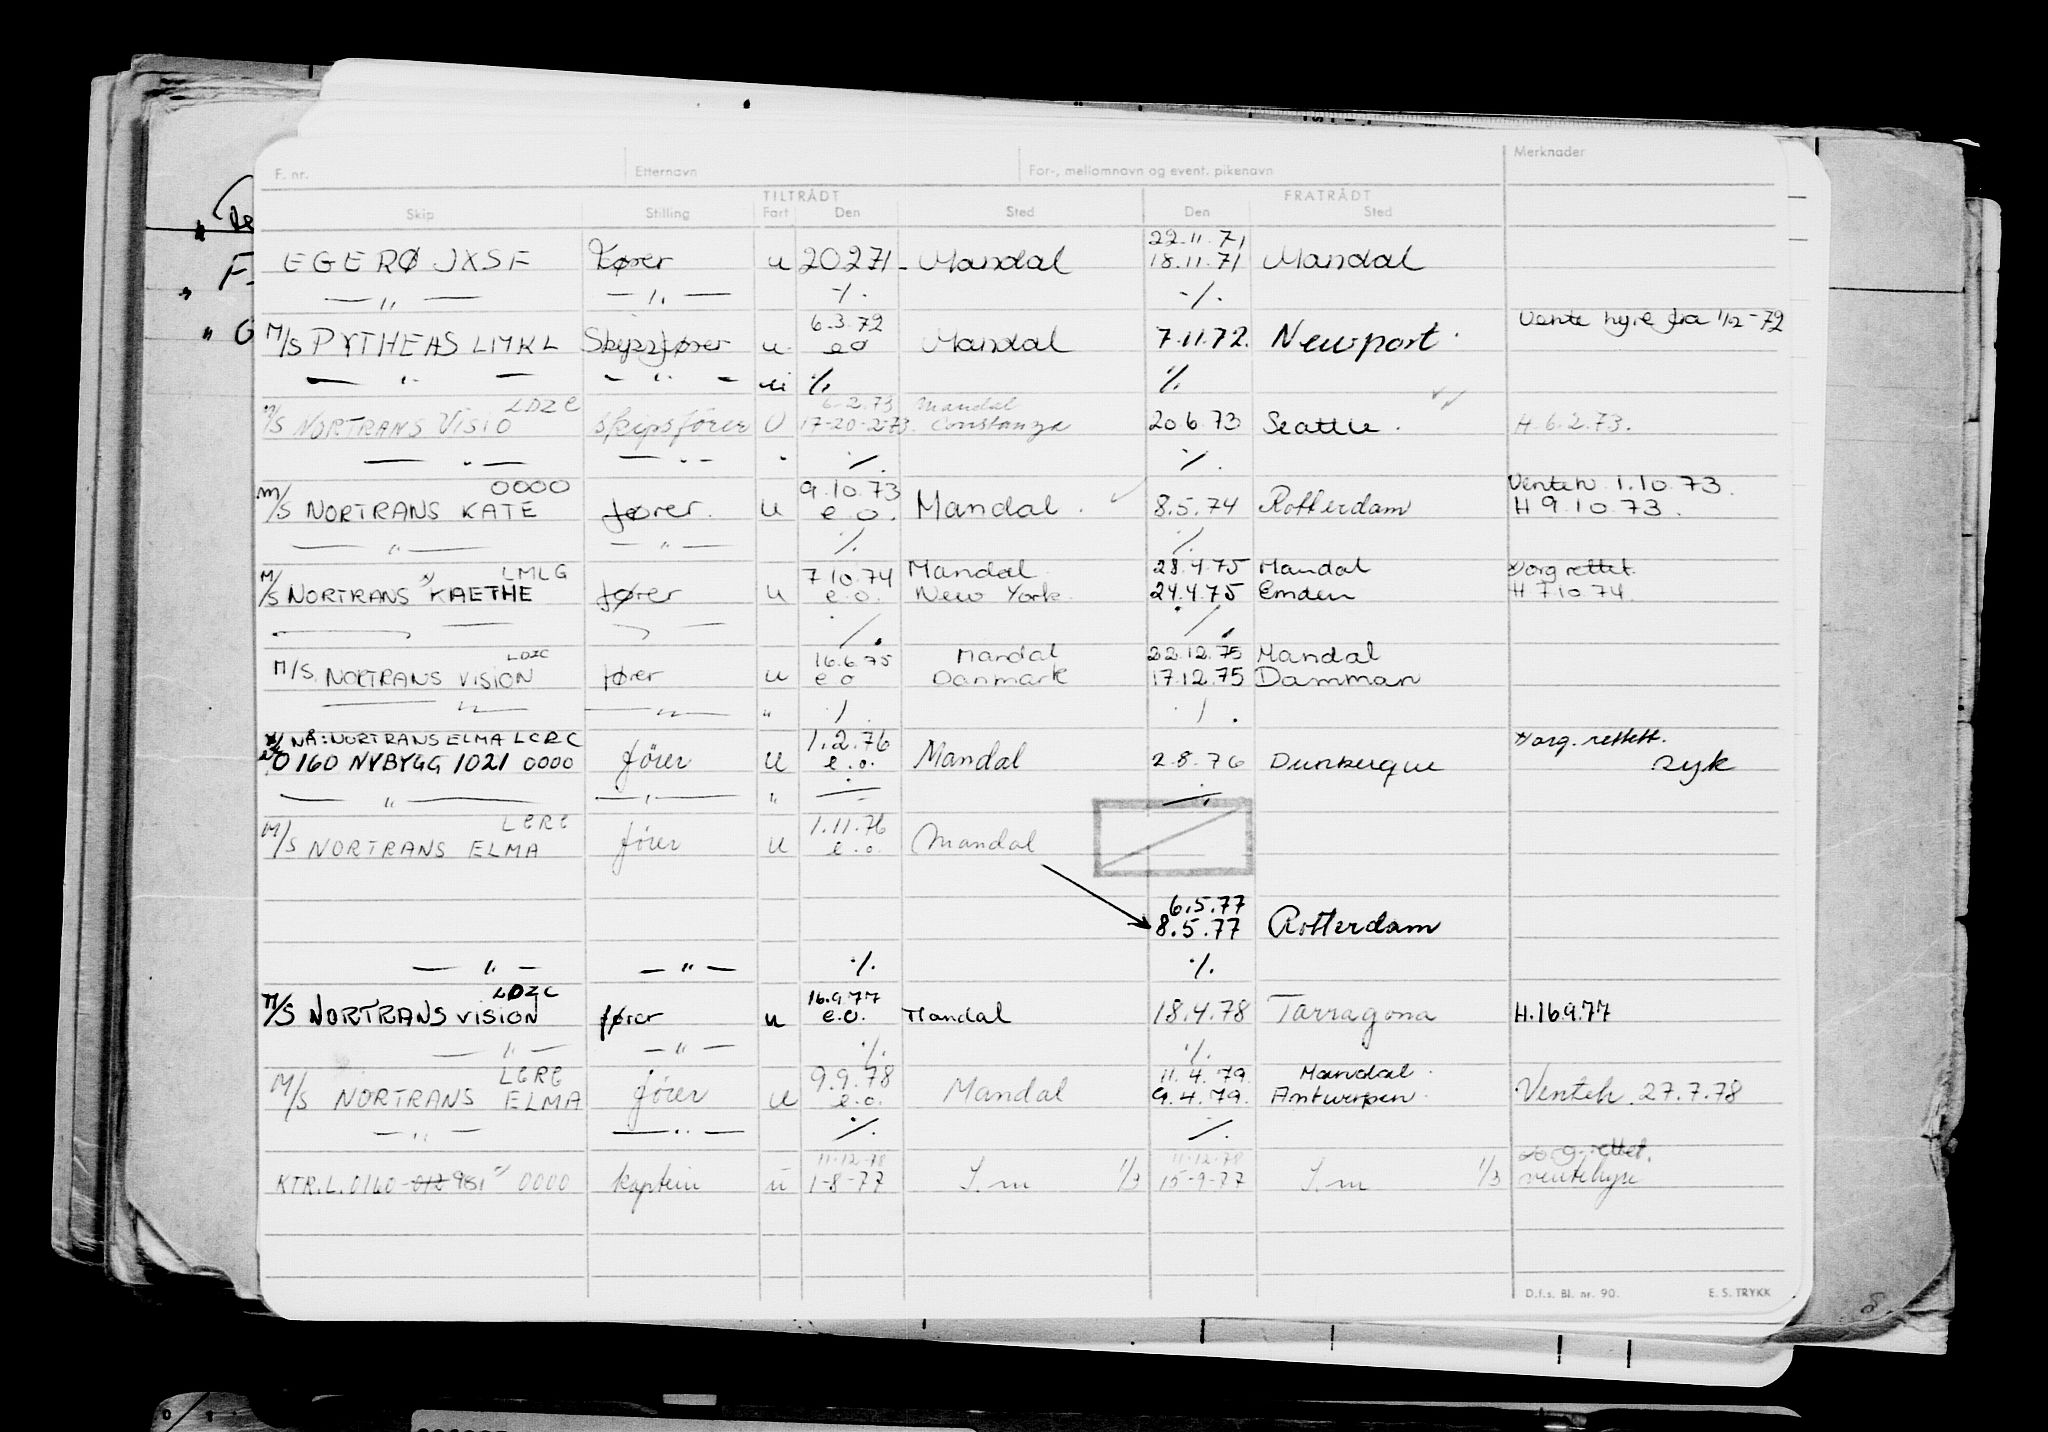 F. nr. Etternavn For-, mellomnavn og event. pikenavn Merknader
TILTRÅDT FRATRÅDT
Skip Stilling Fart Den Sted Den Sted
22.11.71
EGERØ JXSF Fører u 20271- Mandal 18.11.71 Mandal
— „ — — „ — ·/. ·/.
6.3.72 Vente hyre fra 1/12-72
M/S PYTHEAS LMKL Skipsfører u eo Mandal 7.11.72. Newport.
— „ — — „ — ui ·/. ·/.
LDZC 6.2.73 Mandal
M/S NORTRANS VISIO skipsfører U 17-20-2-73. Constanza 20.6.73 Seattle. H.6.2.73.
— „ — — „ — " ·/. ·/.
0000 9.10.73 Venteh 1.10.73.
M/S NORTRANS KATE fører. u e.o. Mandal. 8.5.74 Rotterdam H 9.10.73.
— „ — — „ — ·/. ·/.
LMLG 7.10.74 Mandal 28.4.75 Mandal x) org rettet.
M/S NORTRANS x) KAETHE fører u e.o. New York. 24.4.75 Emden H 7.10.74.
·/. ·/.
LDZC 16.6.75 Mandal 22.12.75 Mandal
M/S. NORTRANS VISION fører u eo Danmark 17.12.75 Damman
— „ — — „ — " ·/. ·/.
x) NÅ: NORTRANS ELMA LCRC 1.2.76 x) org. rettett.
0160 NYBYGG 1021 0000 fører u e.o. Mandal 2.8.76 Dunkerque syk
— „ — — „ — " ·/. ·/.
LCRC 1.11.76
M/S NORTRANS ELMA fører u e.o. Mandal
6.5.77
8.5.77 Rotterdam
— „ — — „ — ·/. ·/.
LDZC 16.9.77
M/S NORTRANS VISION fører u e.o. Mandal 18.4.78 Tarragona H.16.9.77
— „ — — „ — ·/. ·/.
LCRC 9.9.78 11.4.79. Mandal.
M/S NORTRANS ELMA fører u e.o. Mandal 9.4.79. Antwerpen. Venteh. 27.7.78
— „ — — „ — ·/. ·/.
11.12.78 11.12.78 org. rettet.
KTR.L.0160-012 981 x) 0000 kaptein u 1-8-77 S.m 1/3 15-9-77 S.m 1/3 ventehyre
D.f.s. Bl. nr. 90. E. S. TRYKK